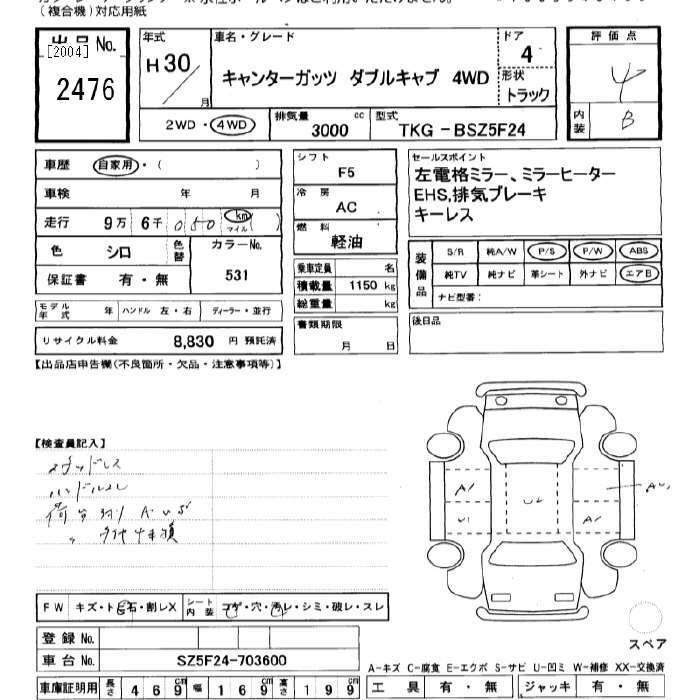 (複合機)対応用紙
出品 No.
[2004]
2476
年式
H30/ 月
車名・グレード
キャンターガッツ ダブルキャブ 4WD
ドア
4
形状
トラック
評価点
4
内装
B
2WD・4WD
排気量
3000 cc
型式
TKG-BSZ5F24
車歴 自家用・( )
車検 年 月
走行 9万 6千 050 km マイル ( )
色 シロ 色替
カラーNo.
531
保証書 有・無
モデル年式 年 ハンドル 左・右 ディーラー・並行
リサイクル料金 8,830 円 預託済
シフト
F5
冷房
AC
燃料
軽油
乗車定員 名
積載量 1150 kg
総重量 kg
書類期限
月 日
セールスポイント
左電格ミラー、ミラーヒーター
EHS,排気ブレーキ
キーレス
装備品
S/R 純A/W P/S P/W ABS
純TV 純ナビ 革シート 外ナビ エアB
ナビ型番:
後日品
【出品店申告欄(不良箇所・欠品・注意事項等)】
【検査員記入】
スタッドレス
ハンドルスレ
荷台
A1
U1
U2
A1
FW キズ・トビ石・割レX シート内装 コゲ・穴・汚レ・シミ・破レ・スレ
登録 No.
車台 No. SZ5F24-703600
車庫証明用 長さ 469cm 幅 169cm 高さ 199cm
スペア
A-キズ C-腐食 E-エクボ S-サビ U-凹ミ W-補修 XX-交換済
工具 有・無 ジャッキ 有・無